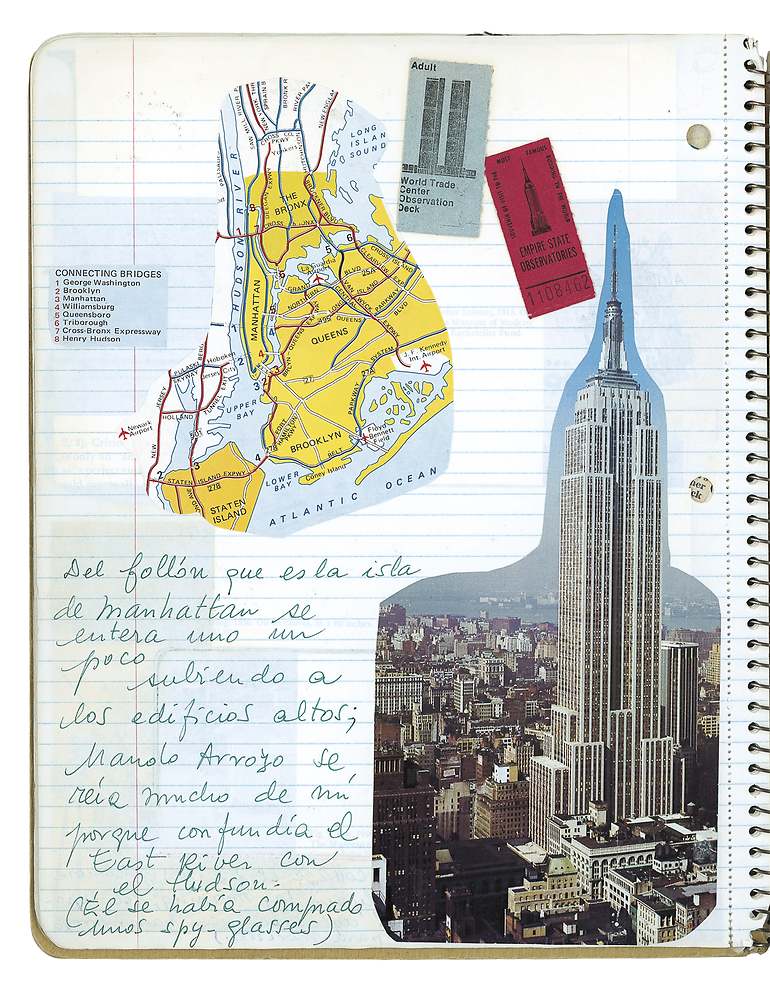 Adult
World Trade
Center
Observation
Deck
MOST FAMOUS
EMPIRE STATE
OBSERVATORIES
1108462
CONNECTING BRIDGES
1 George Washington
2 Brooklyn
3 Manhattan
4 Williamsburg
5 Queensboro
6 Triborough
7 Cross-Bronx Expressway
8 Henry Hudson
LONG
ISLAN
SOUND
Yonkers
THE
BRONX
HUDSON RIVER
MANHATTAN
La Guardia
Airport
QUEENS
J. F. Kennedy
Int. Airport
Hoboken
Jersey City
PULASKI
SKYWAY
HOLLAND
Newark
Airport
UPPER
BAY
BROOKLYN
Floyd
Bennett
Field
BELT
Coney Island
LOWER
BAY
STATEN ISLAND EXPWY
278
STATEN
ISLAND
ATLANTIC OCEAN
Del follón que es la isla
de Manhattan se
entera uno un
poco
subiendo a
los edificios altos;
Manolo Arroyo se
reía mucho de mí
porque confundía el
East River con
el Hudson.
(Él se había comprado
unos spy-glasses)